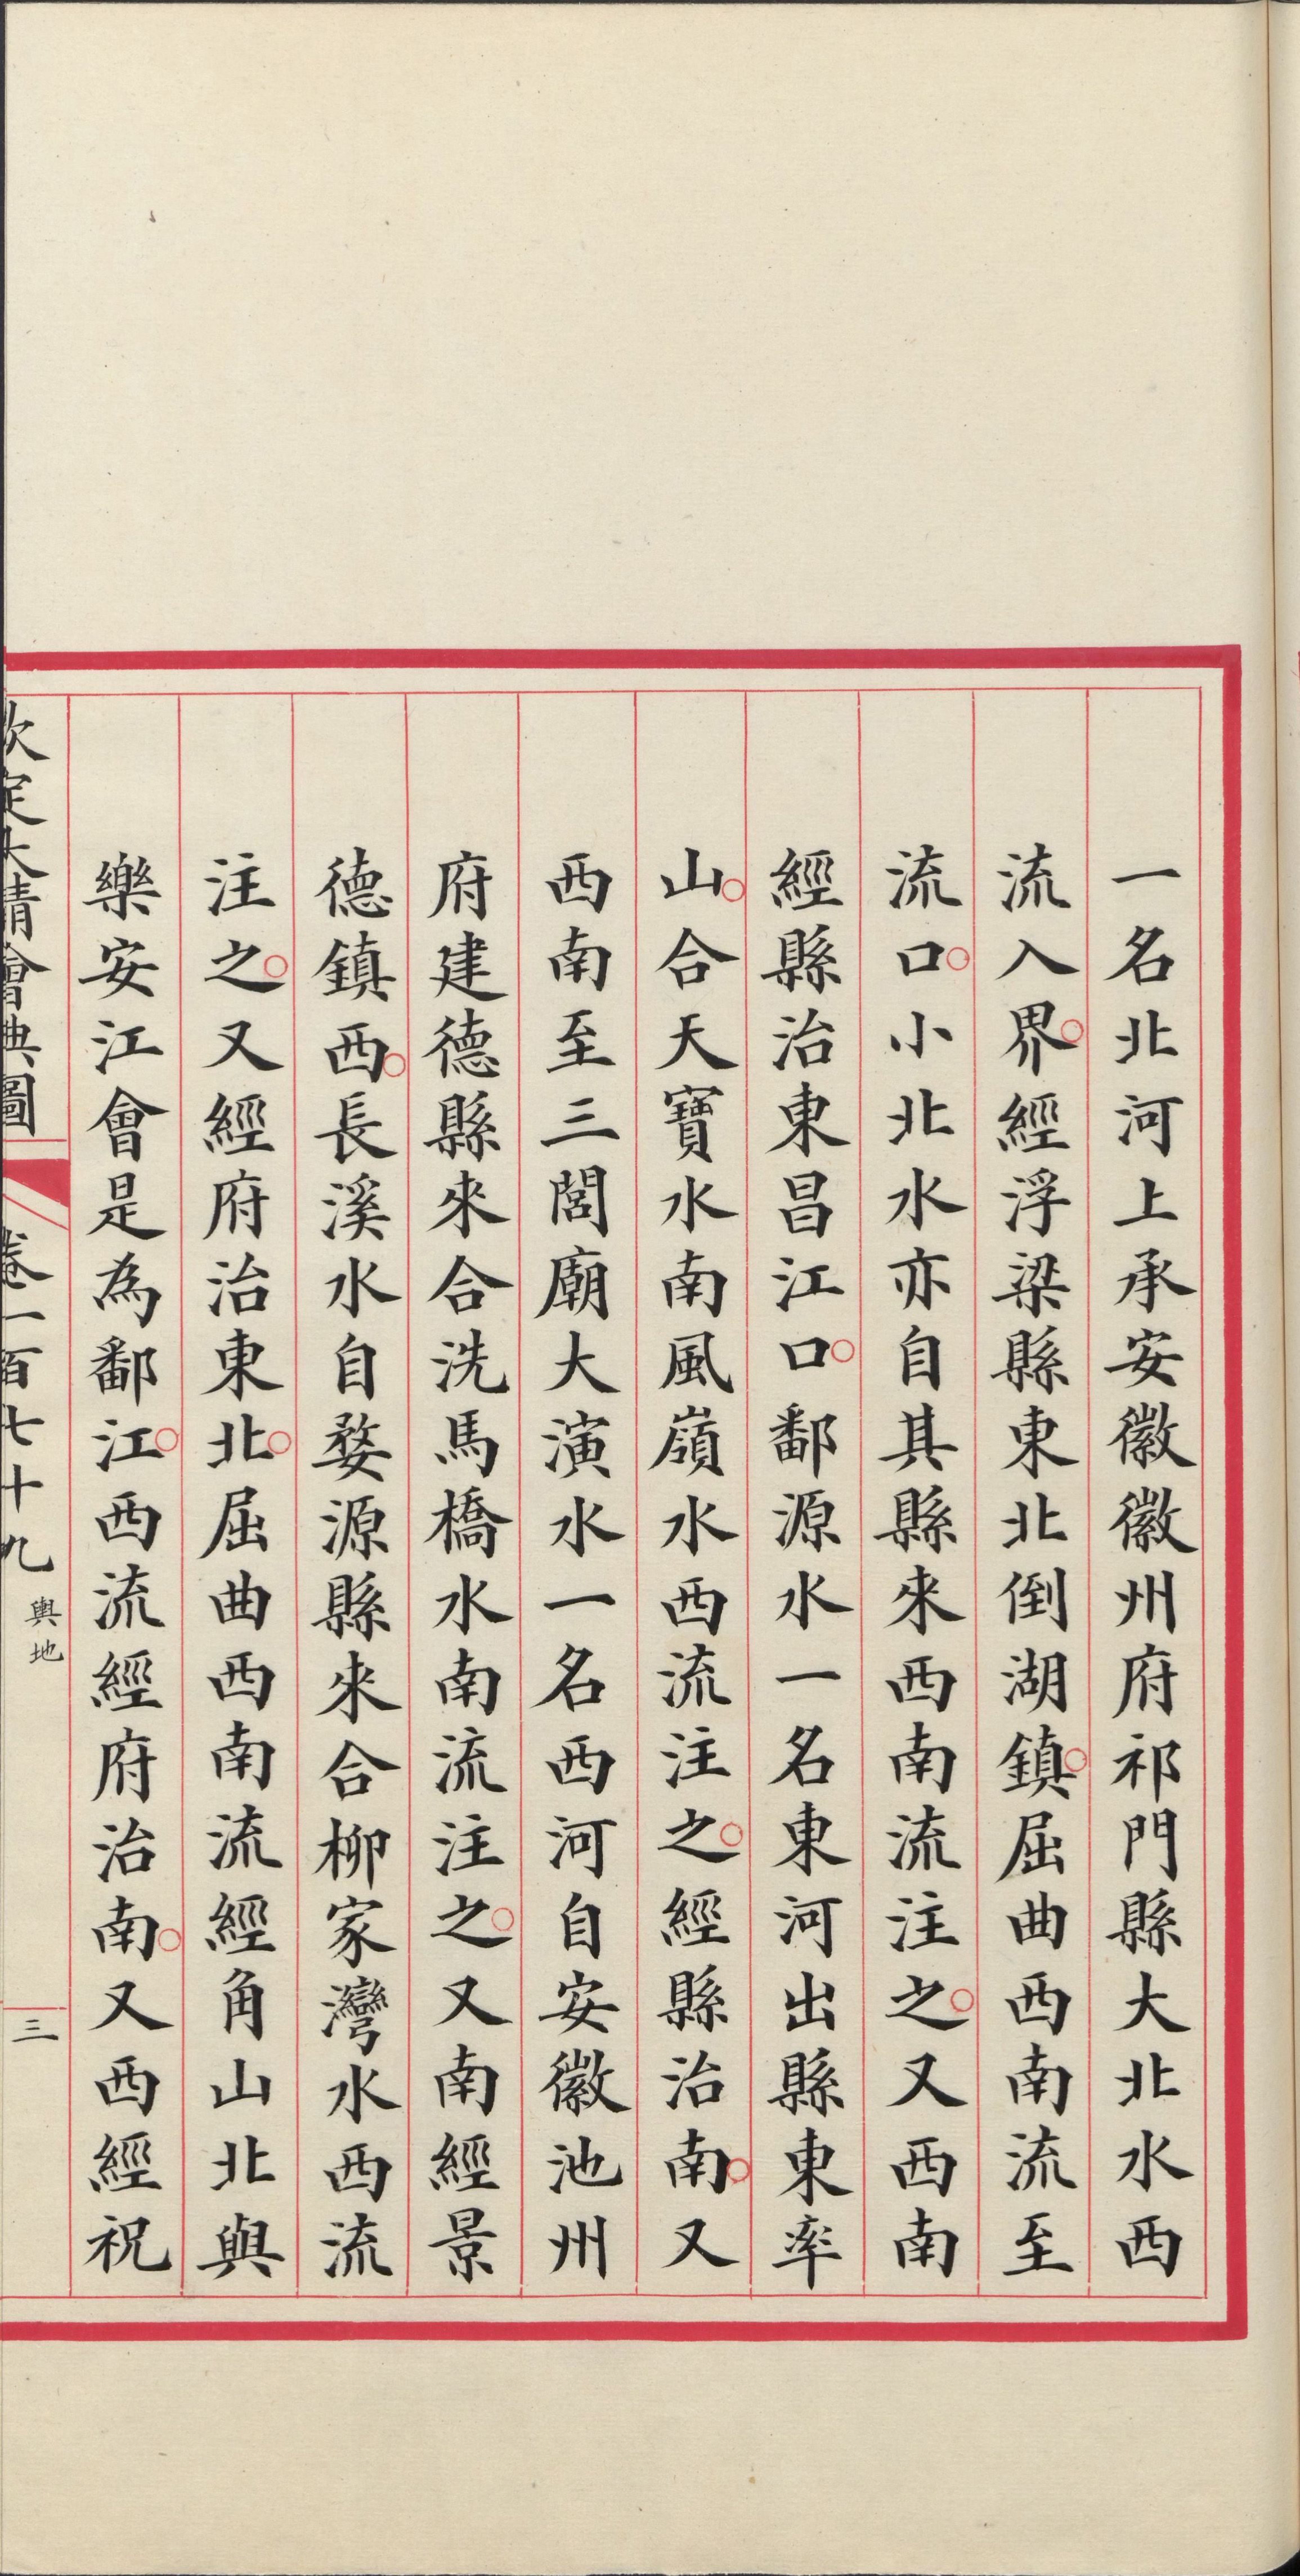 一名北河上承安徽徽州府祁門縣大北水西
流入界。經浮梁縣東北倒湖鎮。屈曲西南流至
流口。小北水亦自其縣來西南流注之。又西南
經縣治東昌江口。鄱源水一名東河出縣東率
山。合天寶水南風嶺水西流注之。經縣治南。又
西南至三閭廟大演水一名西河自安徽池州
府建德縣來合洗馬橋水南流注之。又南經景
德鎮西。長溪水自婺源縣來合柳家灣水西流
注之。又經府治東北。屈曲西南流經角山北與
樂安江會是為鄱江。西流經府治南。又西經祝
欽定大清會典圖 卷一百七十九 輿地 三